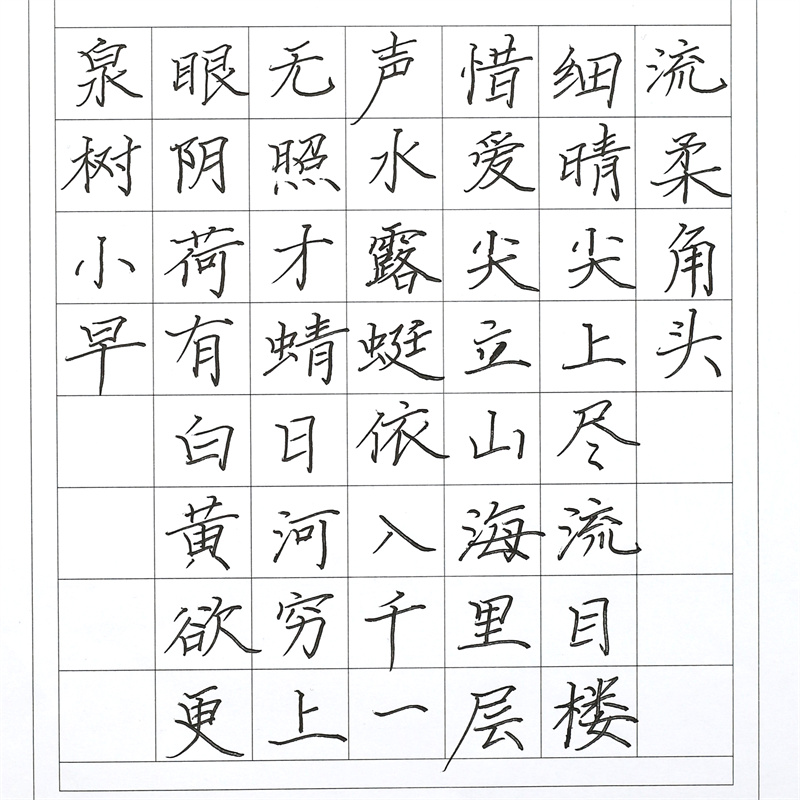 泉眼无声惜细流
树阴照水爱晴柔
小荷才露尖尖角
早有蜻蜓立上头
白日依山尽
黄河入海流
欲穷千里目
更上一层楼